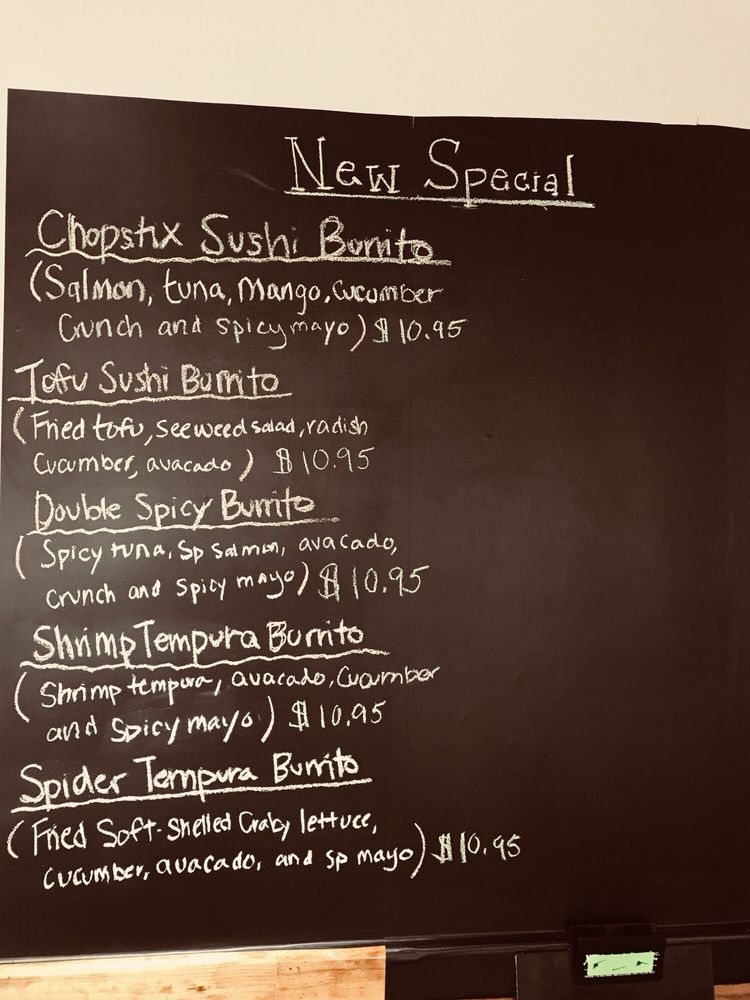 New Special
Chopstix Sushi Burrito
(Salmon, tuna, Mango, cucumber
Crunch and spicy mayo) $10.95
Tofu Sushi Burrito
(Fried tofu, seeweed salad, radish
Cucumber, avacado) $10.95
Double Spicy Burrito
(Spicy tuna, Sp salmon, avacado,
crunch and spicy mayo) $10.95
Shrimp Tempura Burrito
(Shrimp tempura, avacado, Cucumber
and Spicy mayo) $10.95
Spider Tempura Burrito
(Fried Soft-Shelled Crab, lettuce,
cucumber, avacado, and sp mayo) $10.95